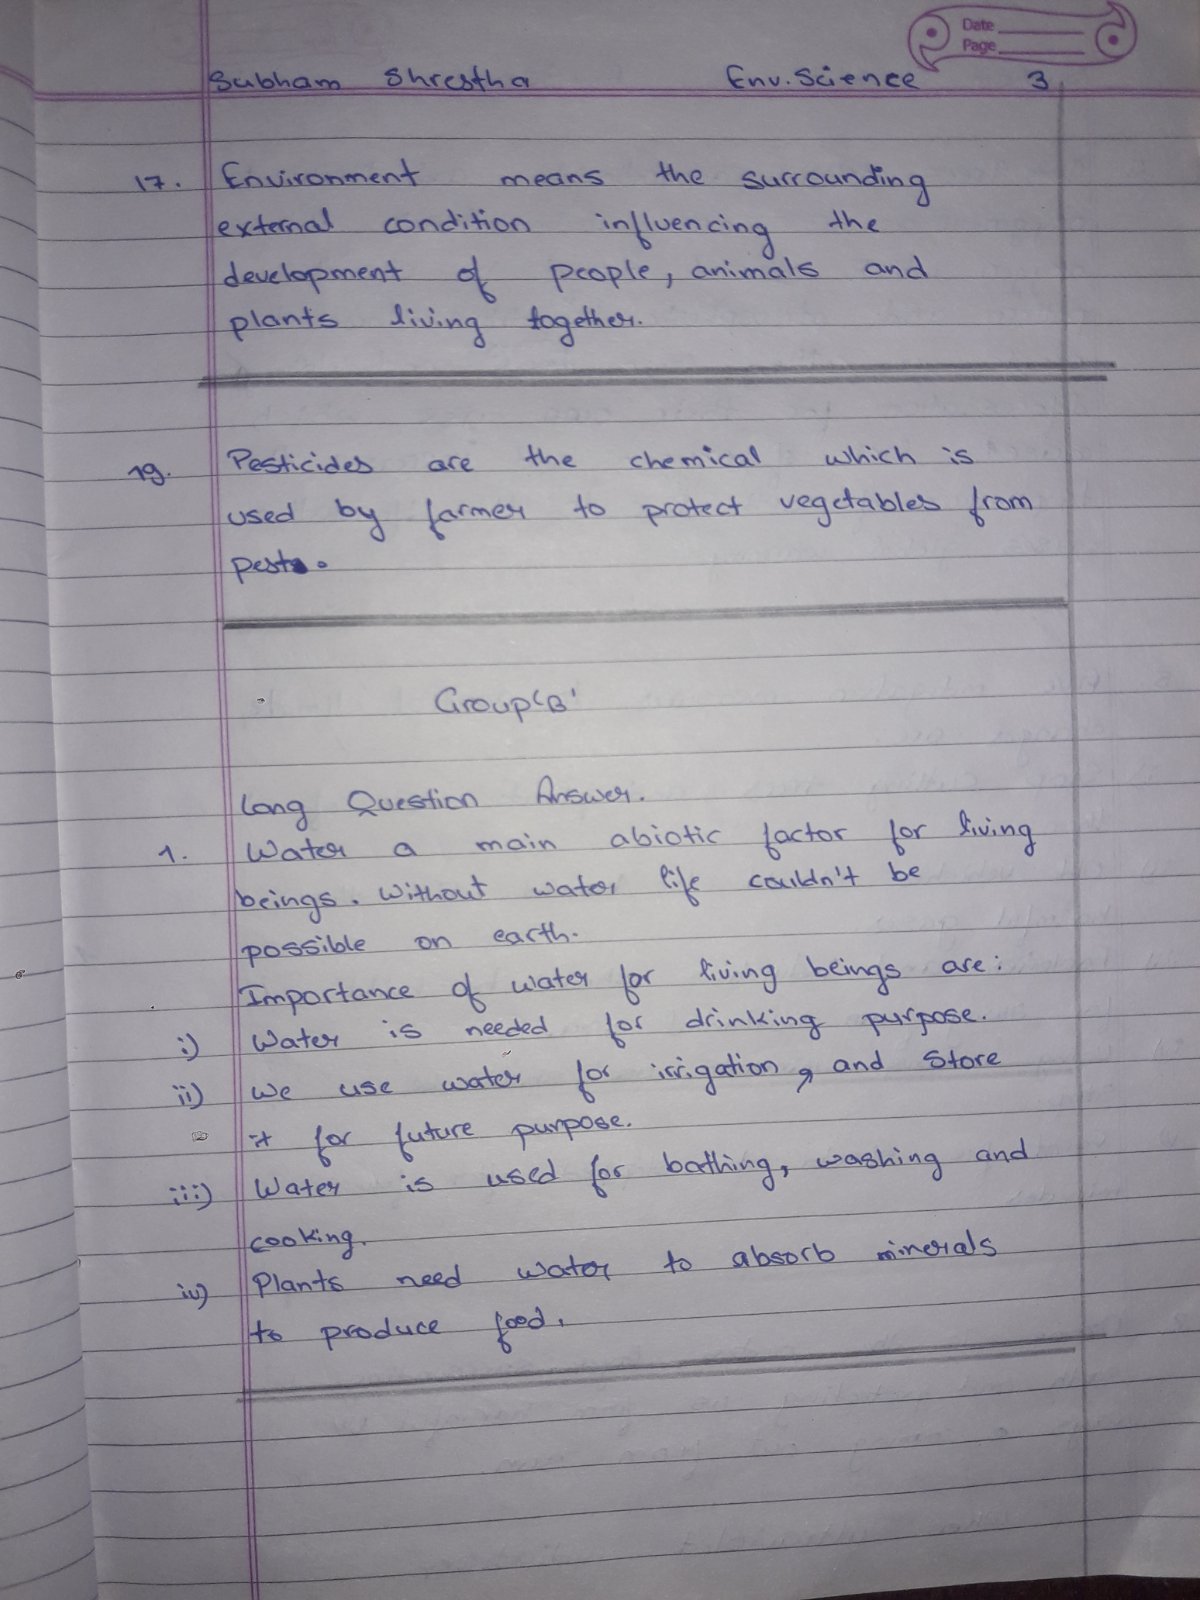 Date
Page
Subham Shrestha Env. Science 3
17. Environment means the surrounding
external condition influencing the
development of people, animals and
plants living together.
19. Pesticides are the chemical which is
used by farmer to protect vegetables from
pests.
Group 'B'
Long Question Answer.
1. Water a main abiotic factor for living
beings. Without water life couldn't be
possible on earth.
Importance of water for living beings are:
i) Water is needed for drinking purpose.
ii) We use water for irrigation, and store
it for future purpose.
iii) Water is used for bathing, washing and
cooking.
iv) Plants need water to absorb minerals
to produce food.